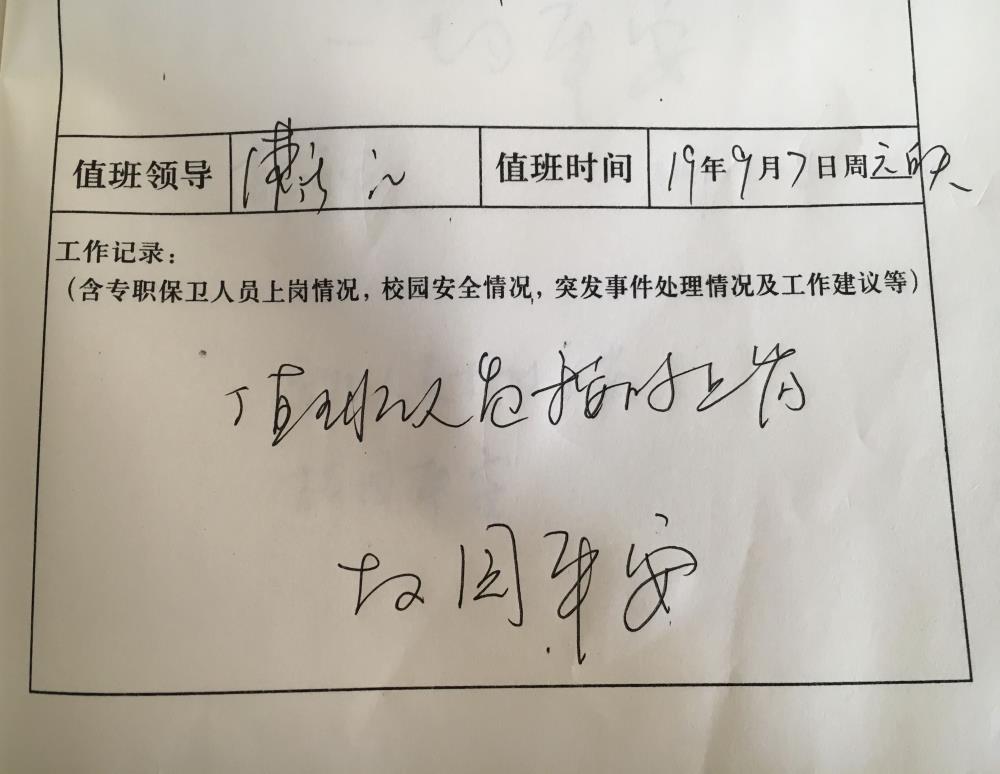 值班领导 值班时间 19年9月7日周
工作记录：
（含专职保卫人员上岗情况，校园安全情况，突发事件处理情况及工作建议等）
值班人员按时上岗
校园平安